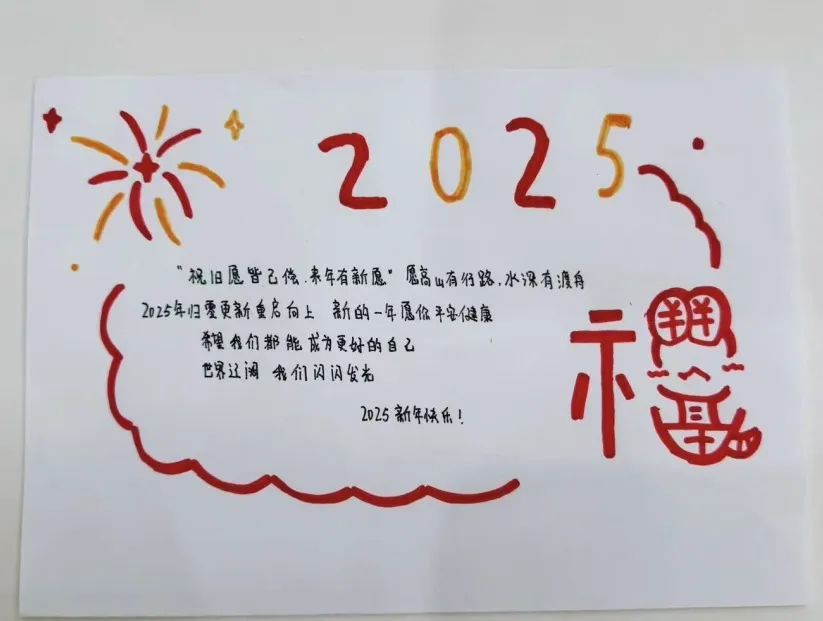 2025
"祝旧愿皆已偿.来年有新愿" 愿高山有行路,水深有渡舟
2025年归零更新重启向上 新的一年愿你平安健康
希望我们都能成为更好的自己
世界辽阔 我们闪闪发光
2025新年快乐!